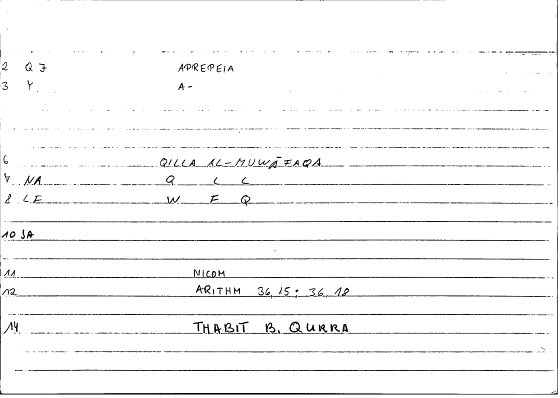 2 Q J APREPEIA
3 Y A-
6 QILLA AL-MUWĀFAQA
7 NA Q L L
8 LE W F Q
10 SA
11 NICOM
12 ARITHM 36,15; 36,18
14 THABIT B. QURRA